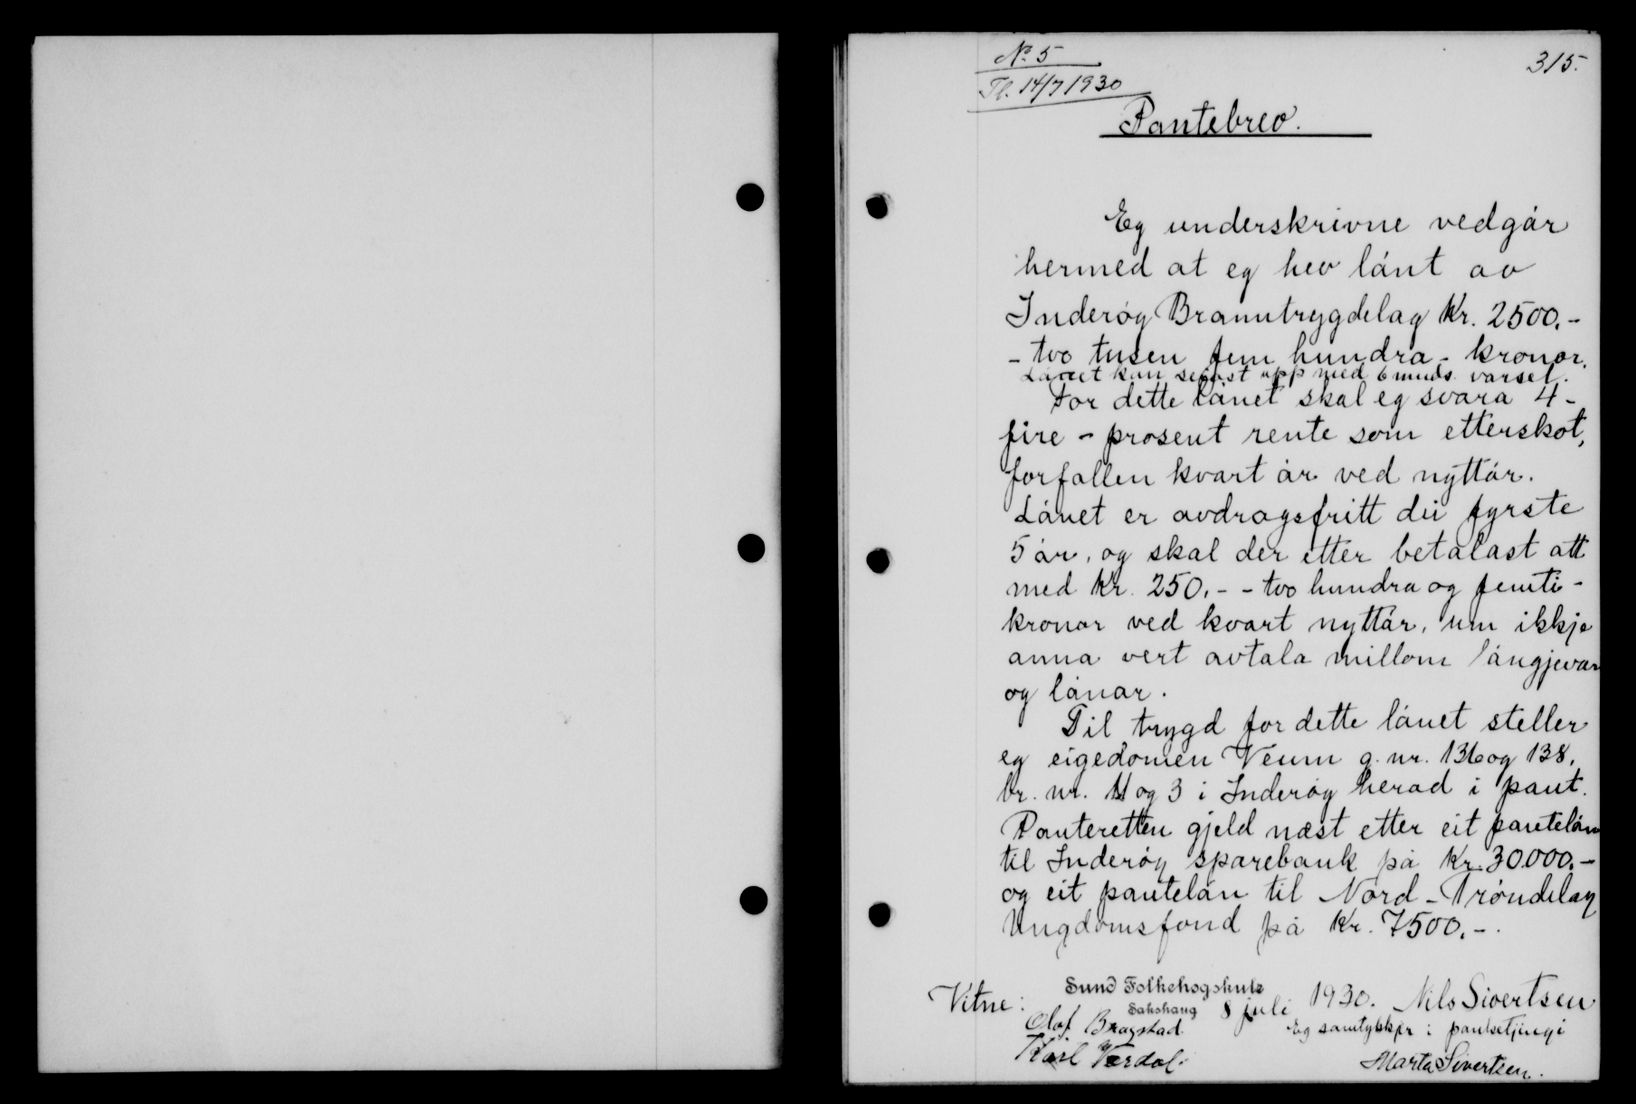 No 5
315.
Tl. 14/7 1930
Pantebrev.
Eg underskrivne vedgår
hermed at eg hev lånt av
Inderøy Branntrygdelag kr. 2500.-
- tvo tusen fem hundra - kronor.
Lånet kan segjast upp med 6 mnds. varsel.
For dette lånet skal eg svara 4 -
fire - prosent rente som etterskot,
forfallen kvart år ved nyttår.
Lånet er avdragsfritt dei fyrste
5 år, og skal der etter betalast att
med kr. 250.- - tvo hundra og femti -
kronor ved kvart nyttår, um ikkje
anna vert avtala millom långjevar
og lånar.
Til trygd for dette lånet steller
eg eigedomen Veum g. nr. 136 og 138,
br. nr. 11 og 3 i Inderøy herad i pant.
Panteretten gjeld næst etter eit pantelån
til Inderøy sparebank på kr. 30.000.-
og eit pantelån til Nord-Trøndelag
Ungdomsfond på kr. 7500.-.
Sund Folkehøgskule
Vitne: Sakshaug 8 juli 1930. Nils Sivertsen
Olaf Bragstad. Eg samtykkjer i pantsetjingi
Karl Værdal. Marta Sivertsen.